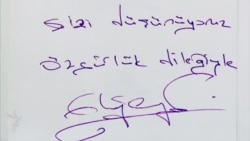 Sizi düşünüyoruz
özgürlük dileğiyle